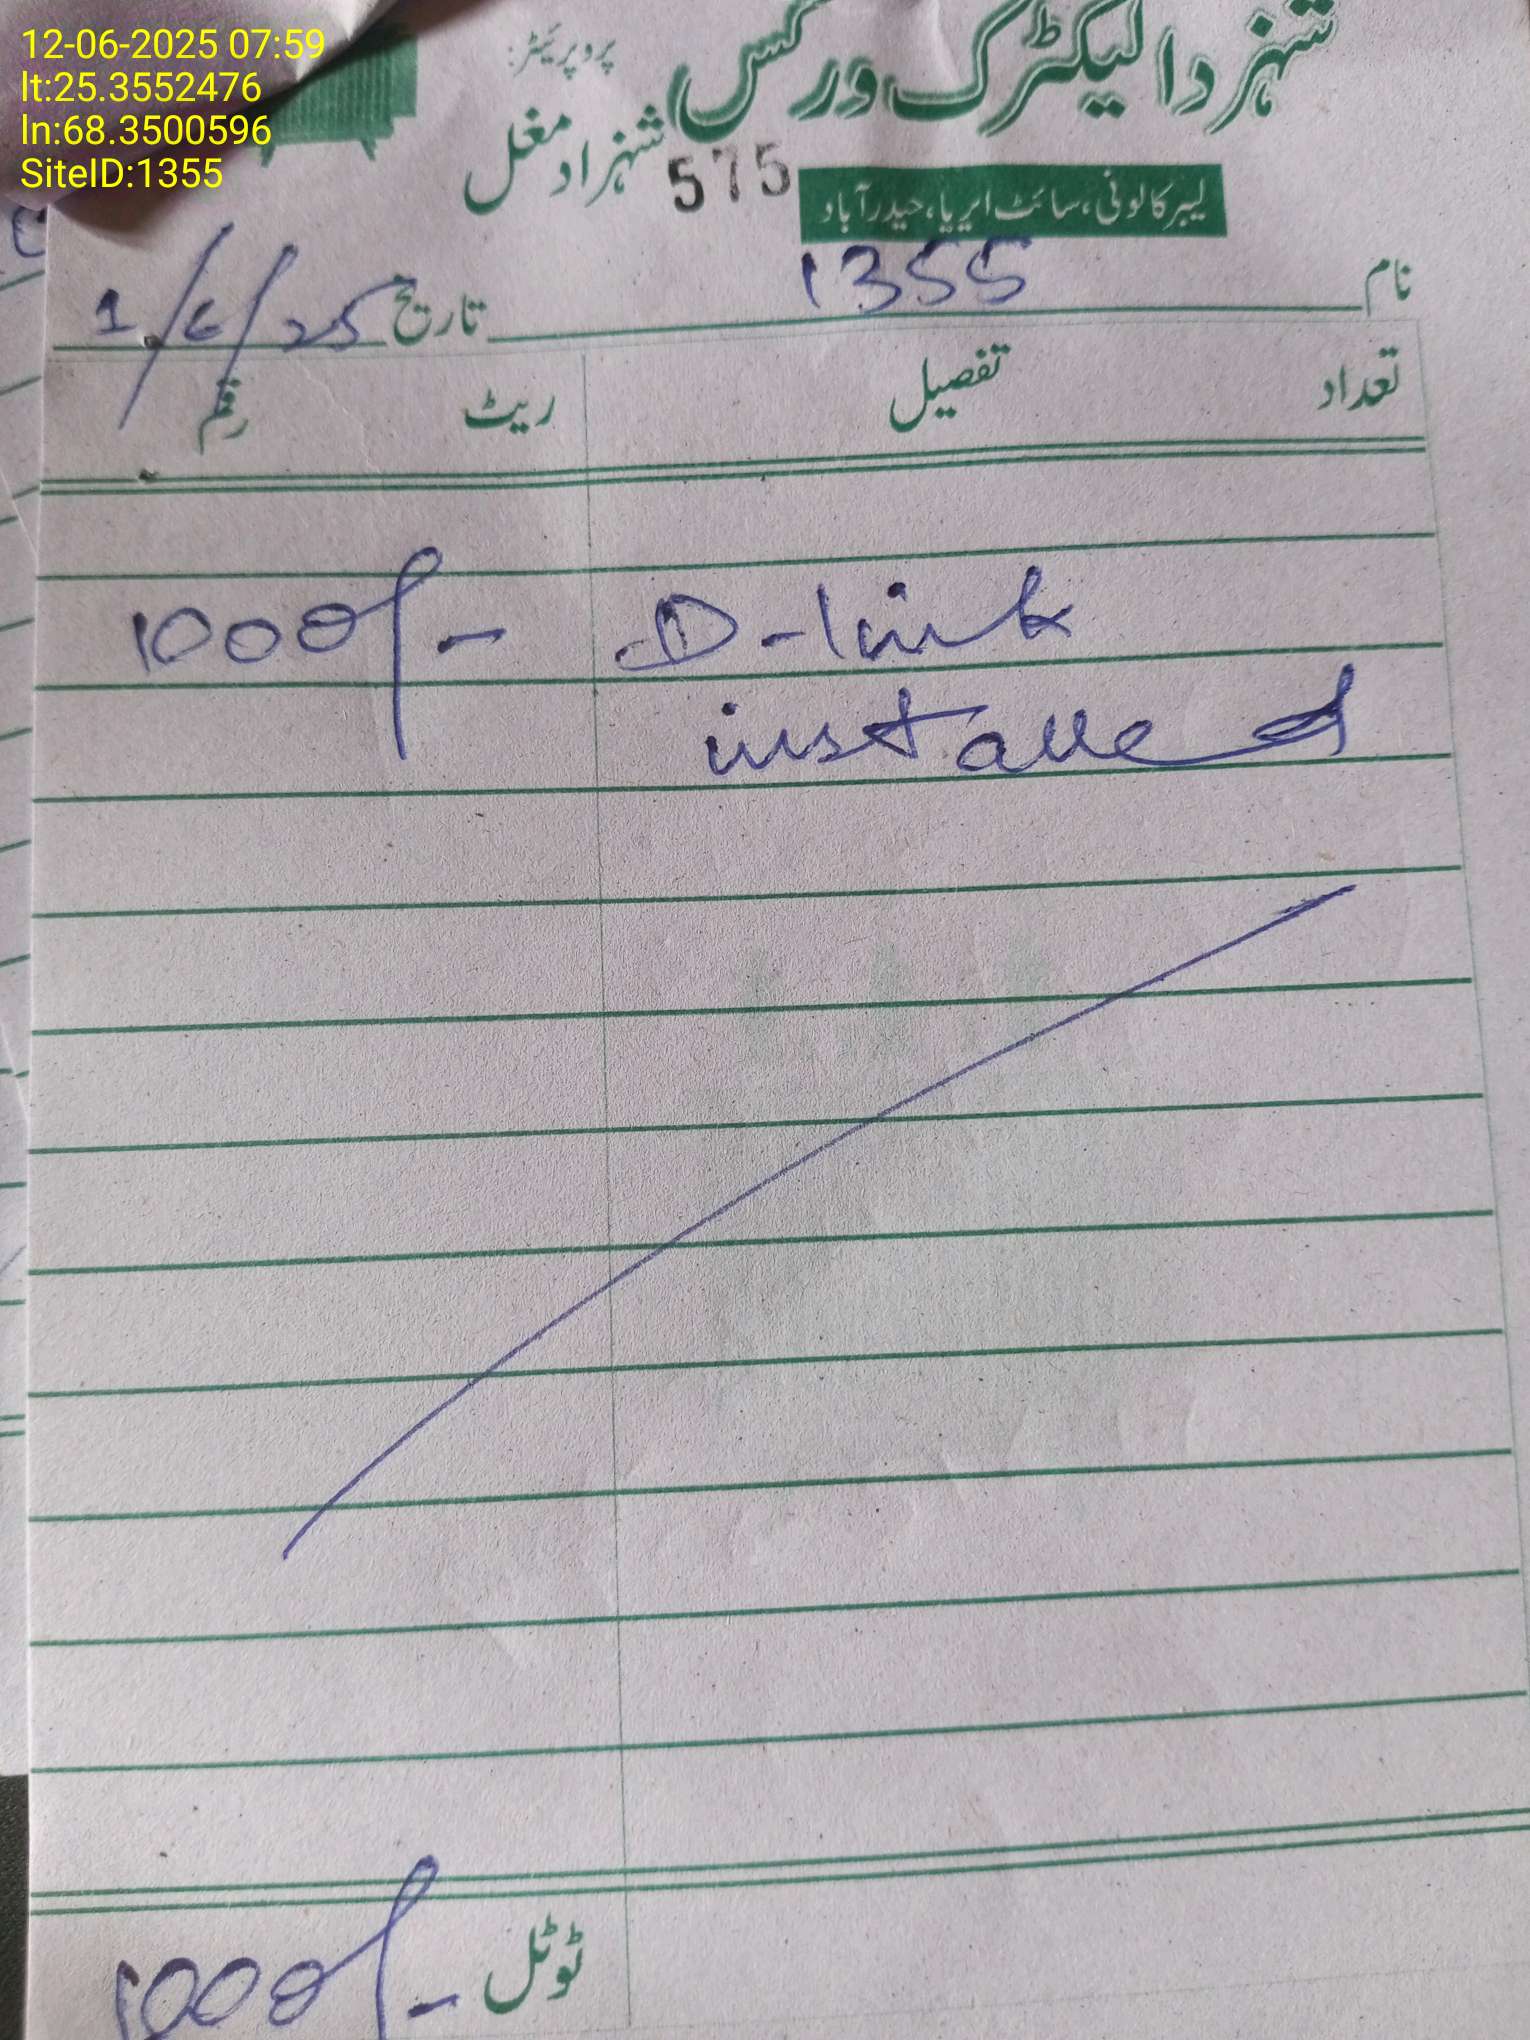 12-06-2025 07:59
lt:25.3552476
ln:68.3500596
SiteID:1355
شہزاد الیکٹرک ورکس
پروپرئیٹر:
شہزاد مغل
575
لیبر کالونی، سائٹ ایریا، حیدرآباد
نام 1355 تاریخ 1/6/25
تعداد تفصیل ریٹ رقم
D-link 1000/-
installed
ٹوٹل 1000/-